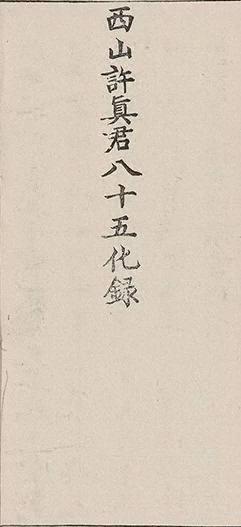 西山許眞君八十五化録